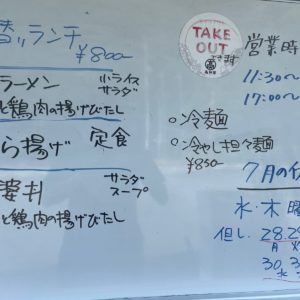 替りランチ
¥800
ラーメン 小ライス サラダ
と鶏肉の揚げびたし
ら揚げ 定食
婆丼 サラダ スープ
と鶏肉の揚げびたし
TAKE OUT
できます
○冷麺
○冷やし担々麺
¥850
営業時
11:30〜
17:00〜
7月の
水・木曜
但し 28.29
月
30.3
水